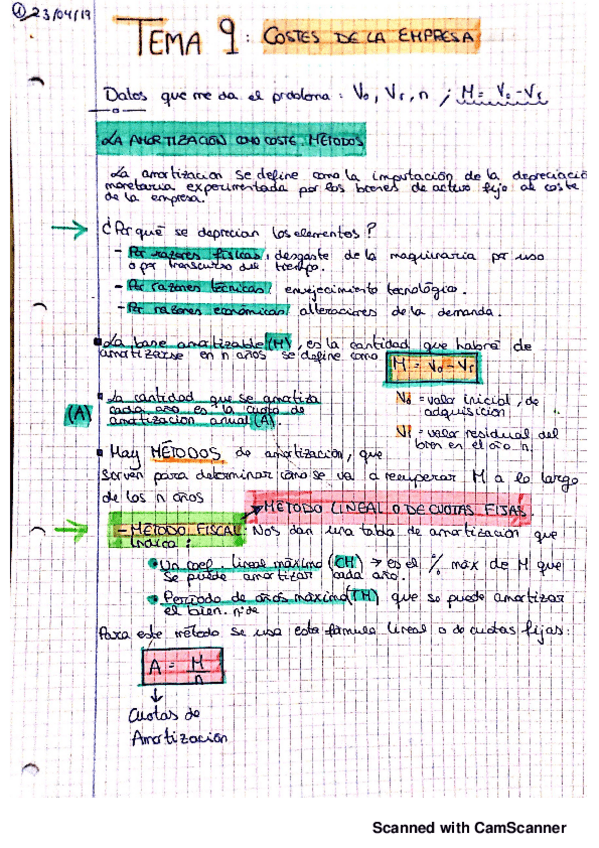 ① 23/04/19
TEMA 9: COSTES DE LA EMPRESA
Datos que me da el problema: V₀, Vr, n ; M = V₀ - Vr
LA AMORTIZACIÓN COMO COSTE. MÉTODOS
La amortización se define como la imputación de la depreciació
monetaria experimentada por los bienes de activo fijo al coste
de la empresa.
→ ¿Por qué se deprecian los elementos?
- Por razones físicas, desgaste de la maquinaria por uso
o por transcurso del tiempo.
- Por razones técnicas, envejecimiento tecnológico.
- Por razones económicas, alteraciones de la demanda.
La base amortizable (M), es la cantidad que habrá de
amortizarse en n años se define como M = V₀ - Vr
La cantidad que se amortiza
cada año es la cuota de
(A) amortización anual (A).
V₀ = valor inicial, de
adquisición
Vr = valor residual del
bien en el año n.
Hay MÉTODOS de amortización, que
sirven para determinar cómo se va a recuperar M a lo largo
de los n años
MÉTODO LINEAL O DE CUOTAS FIJAS.
→ - MÉTODO FISCAL Nos dan una tabla de amortización que
indica:
Un coef. lineal máximo (CH) → es el % max de M que
se puede amortizar cada año.
Periodo de años máximo (TH) que se puede amortizar
el bien. nºde
Para este método se usa esta fórmula lineal o de cuotas fijas:
A = M/n
↓
Cuotas de
Amortización
Scanned with CamScanner